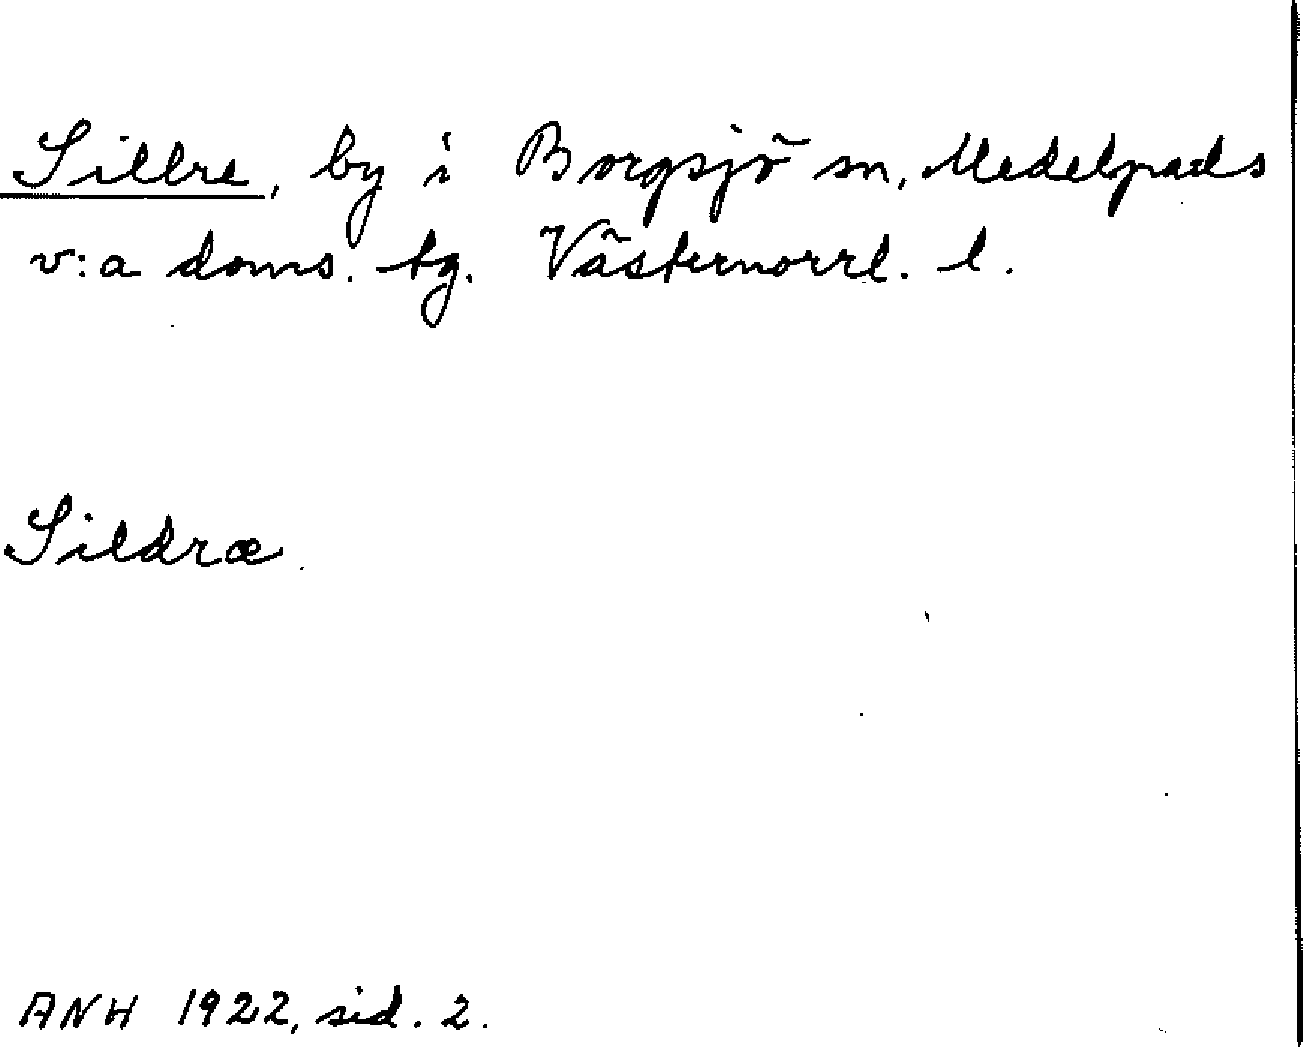 Sillre, by i Borgsjö sn, Medelpads
v:a doms. tg. Västernorrl. l.
Sildræ
ANH 1922, sid. 2.